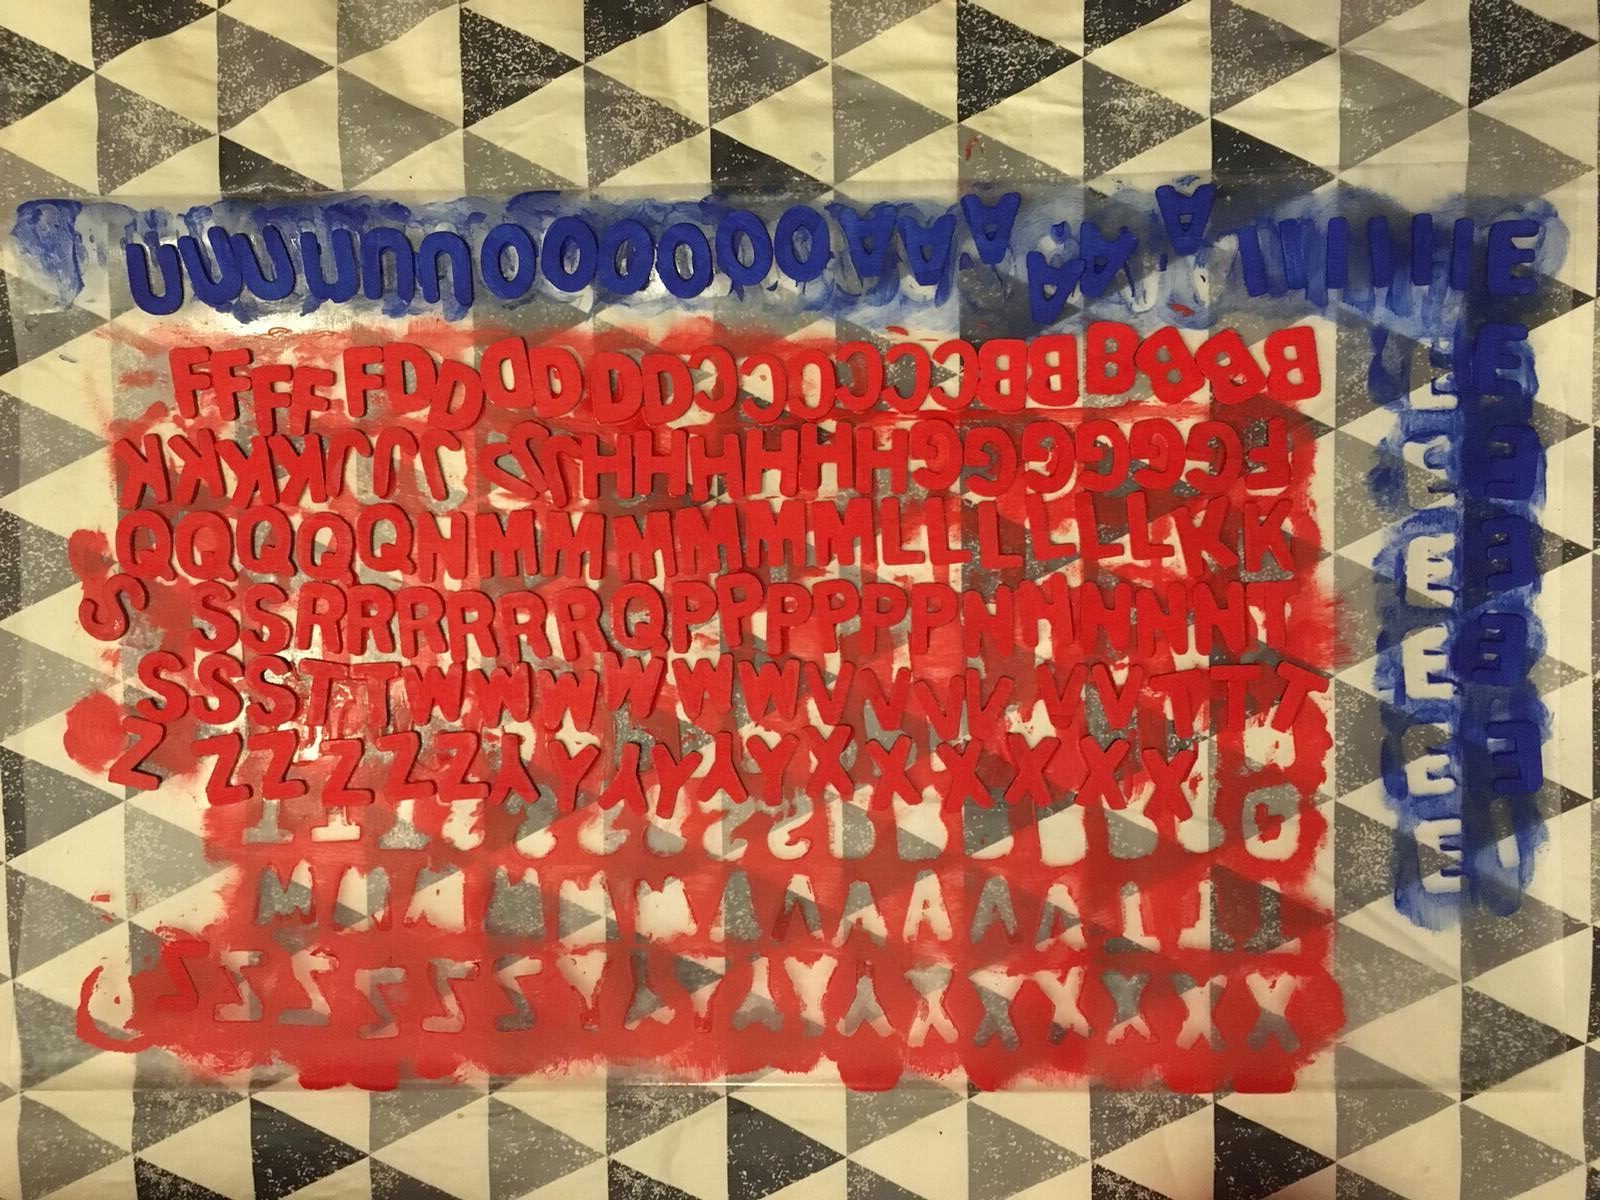 UUUUUUOOOOOOAAAAAAIIIIIIE
FFFFFDDDDDDCCCCCCBBBBBB
KKKKJJJJJJHHHHHHGGGGGGF
QQQQQNMMMMMMLLLLLLKK
SSSRRRRRRQPPPPPPNNNNNT
SSSTTWWWWWWVVVVVVTTT
ZZZZZZYYYYYYXXXXXX
E
E
E
E
E